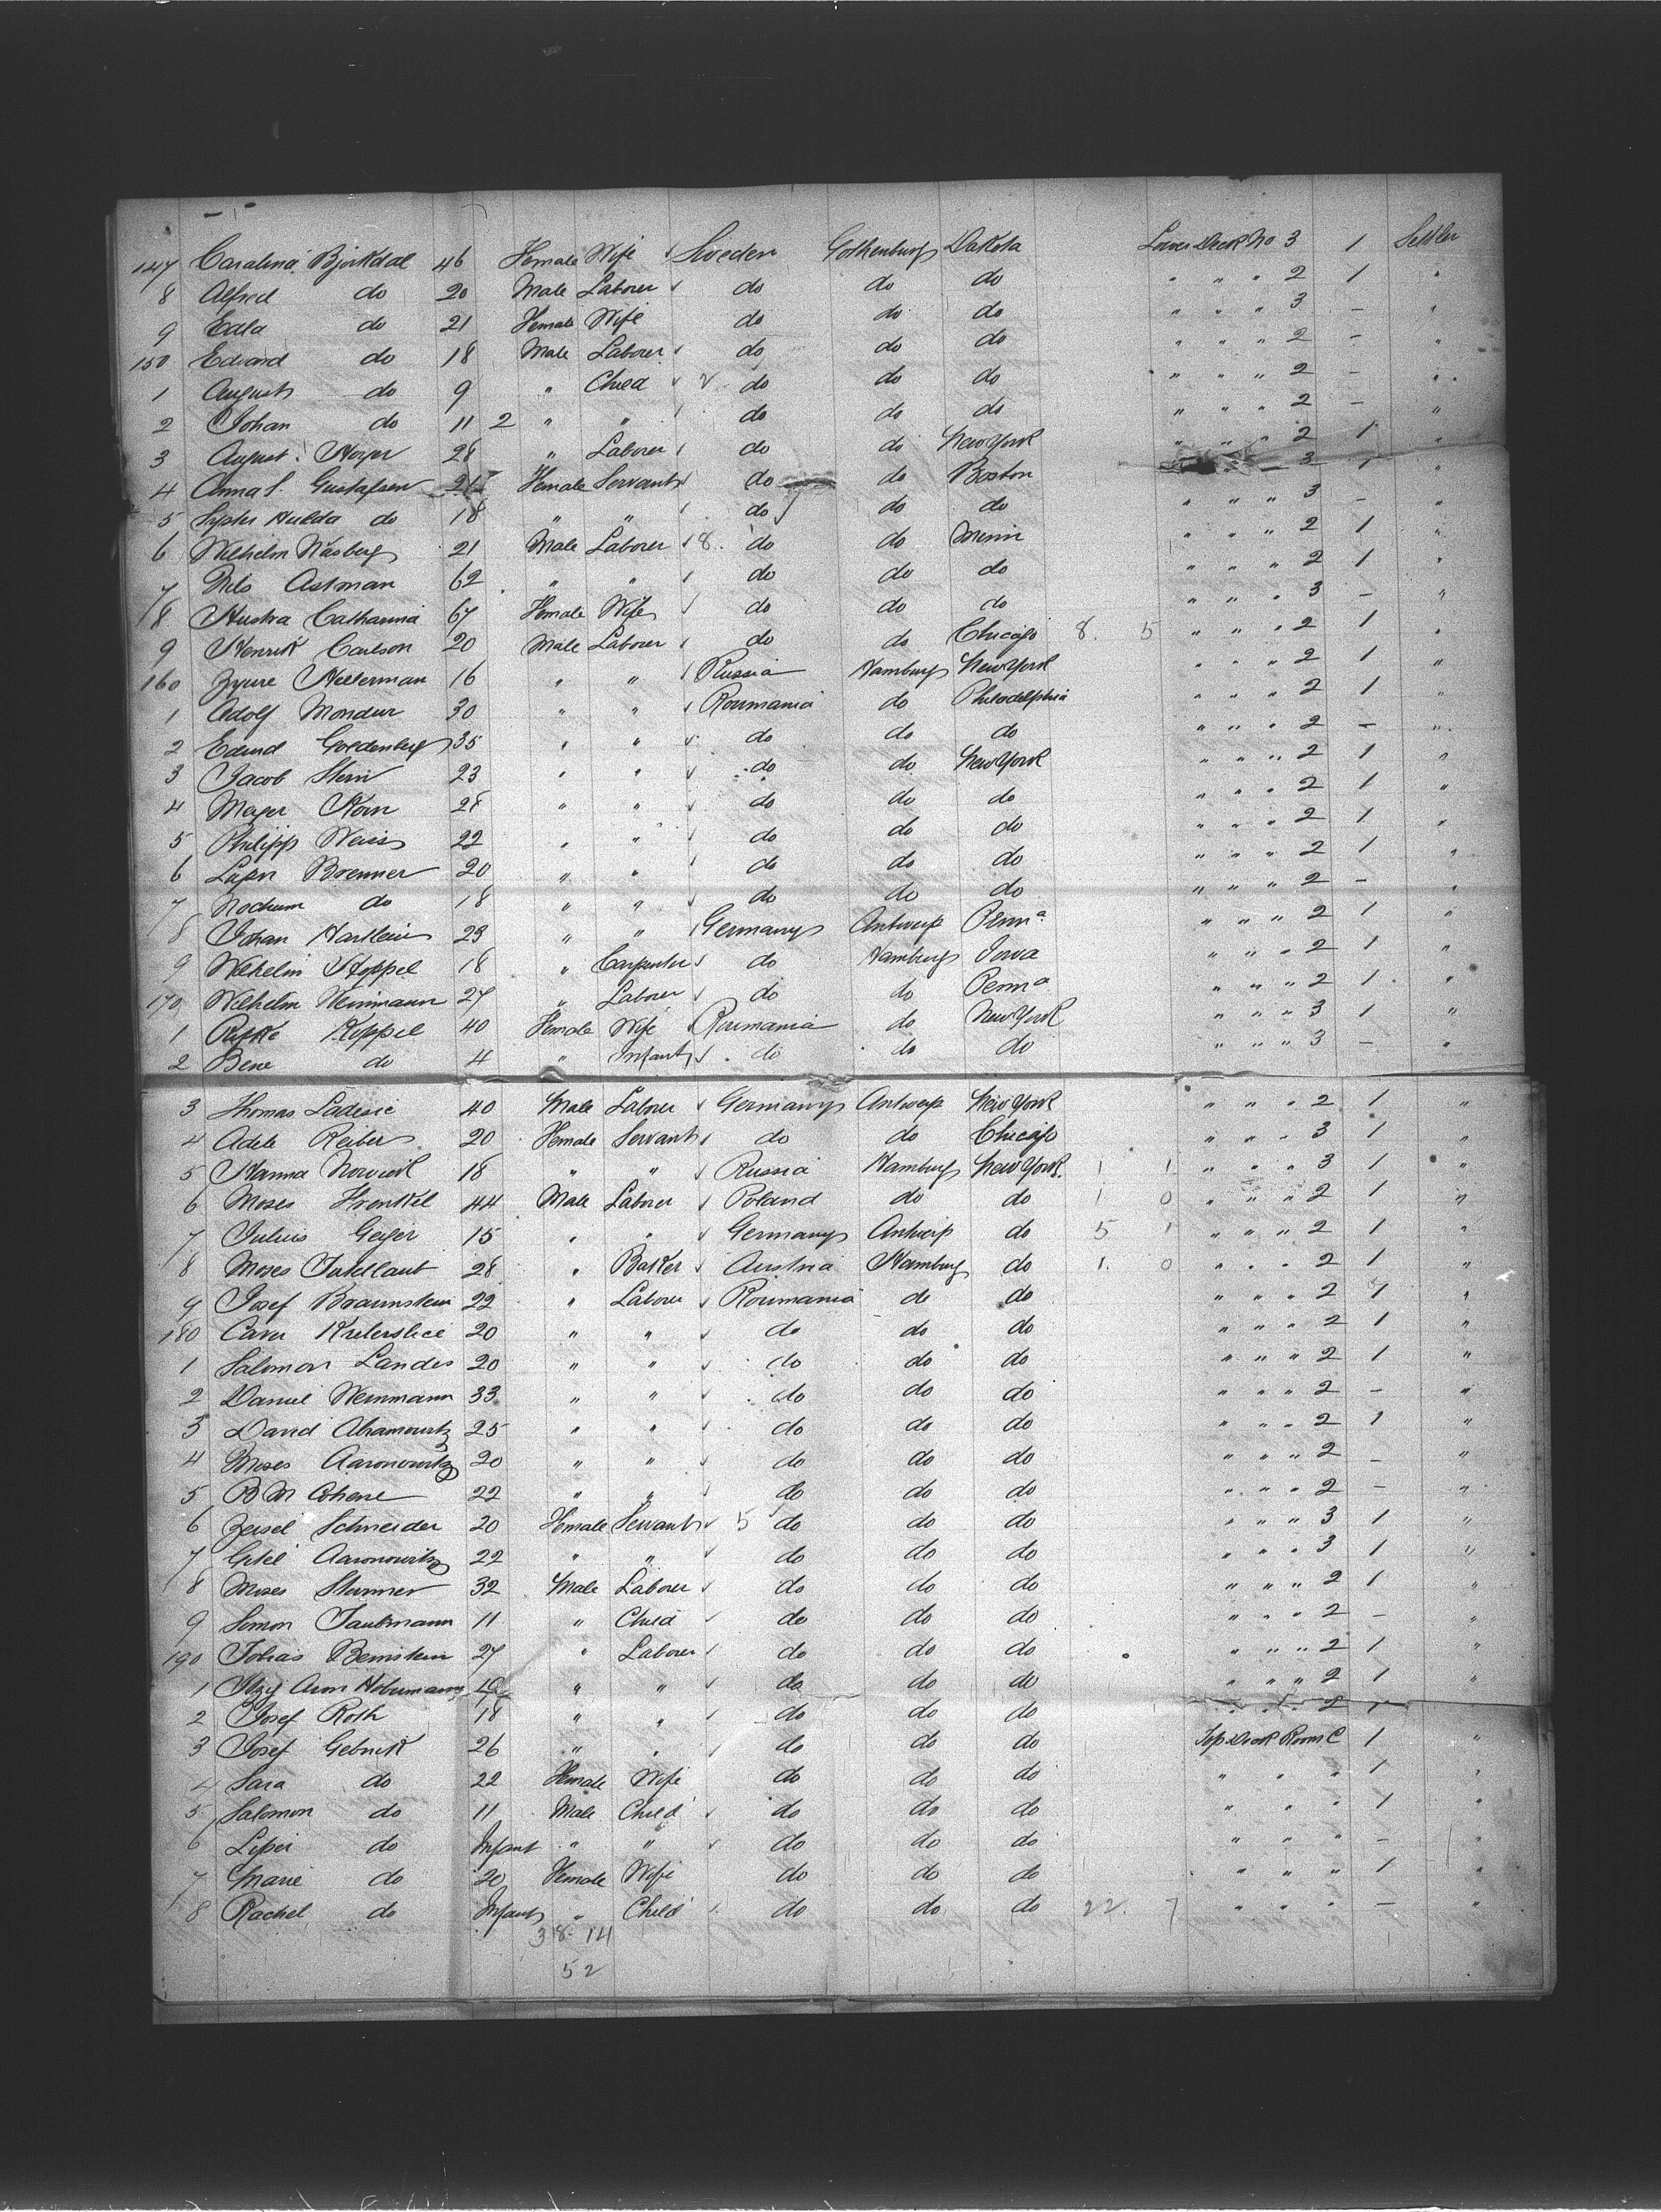 147 Carolina Bjorkdal 46 Female Wife Sweden Gothenburg Dakota Lower Deck No 3 1 Settler
8 Alfred do 20 Male Laborer do do do " " " 2 1 "
9 Edla do 21 Female Wife do do do " " " 3 - "
150 Edvard do 18 Male Laborer do do do " " " 2 - "
1 August do 9 " Child do do do " " " 2 - "
2 Johan do 11 2 " " do do do " " " 2 - "
3 August Hoyer 28 " Laborer do do New York " " " 2 1 "
4 Anna S. Gustafsen 21 Female Servant do do Boston 3 1 "
5 Hulda do 18 " " do do do " " " 3 - "
6 Wilhelm Näsberg 21 Male Laborer 8. do do Minn " " " 2 1 "
7 Nils Astman 62 " " do do do " " " 2 1 "
8 Catharina 67 Female Wife do do do " " " 3 - "
9 Henrik Carlson 20 Male Laborer do do Chicago 8. 5 " " " 2 1 "
160 Hellerman 16 " " Russia Hamburg New York " " " 2 1 "
1 Adolf Mondur 30 " " Roumania do Philadelphia " " " 2 1 "
2 Edund Goldenberg 35 " " do do do " " " 2 - "
3 Jacob Stern 23 " " do do New York " " " 2 1 "
4 Mayer Korn 28 " " do do do " " " 2 1 "
5 Philipp Weiss 22 " " do do do " " " 2 1 "
6 Brenner 20 " " do do do " " " 2 1 "
7 Nochum do 18 " " do do do " " " 2 - "
8 Johan Hartlein 23 " " Germany Antwerp Penna " " " 2 1 "
9 Wilhelm Stoppel 18 " Carpenter do Hamburg Iowa " " " 2 1 "
170 Wilhelm Weinmann 27 " Laborer do do Penna " " " 2 1 "
1 Rifke Koppel 40 Female Wife Roumania do New York " " " 3 1 "
2 Bene do 4 " Infant do do do " " " 3 - "
3 Thomas Ladesic 40 Male Laborer Germany Antwerp New York " " " 2 1 "
4 Adele Reiber 20 Female Servant do do Chicago " " " 3 1 "
5 Hanna Nowicik 18 " " Russia Hamburg New York. 1 1 " " " 3 1 "
6 Moses Frenkel 44 Male Laborer Poland do do 1 0 " " " 2 1 "
7 Julius Geiger 15 " " Germany Antwerp do 5 1 " " " 2 1 "
8 Moses 28 " Baker Austria Hamburg do 1. 0 " " " 2 1 "
9 Josef Braunstein 22 " Laborer Roumania do do " " " 2 1 "
180 20 " " do do do " " " 2 1 "
1 Salomon Landes 20 " " do do do " " " 2 1 "
2 Daniel Weinmann 33 " " do do do " " " 2 - "
3 David Abramowitz 25 " " do do do " " " 2 1 "
4 Moses Aaronowitz 20 " " do do do " " " 2 - "
5 B M Cohene 22 " " do do do " " " 2 - "
6 Zeisel Schneider 20 Female Servant 5 do do do " " " 3 1 "
7 Gitel Aaronowitz 22 " " do do do " " " 3 1 "
8 Moses Sturmer 32 Male Laborer do do do " " " 2 1 "
9 Simon Taubmann 11 " Child do do do " " " 2 - "
190 Tobias Beinstein 27 " Laborer do do do " " " 2 1 "
1 Itzig Aron 19 " " do do do " " " 2 1 "
2 Josef Roth 18 " " do do do " " " 2 1 "
3 Josef Gebruk 26 " " do do do Top Deck Room C 1 "
4 Sara do 22 Female Wife do do do " " " 1 "
5 Salomon do 11 Male Child do do do " " " 1 "
6 do Infant " " do do do " " " - "
7 Marie do 20 Female Wife do do do " " " 1 "
8 Rachel do Infant " Child do do do 22. 7 " " " - "
38. 14
52